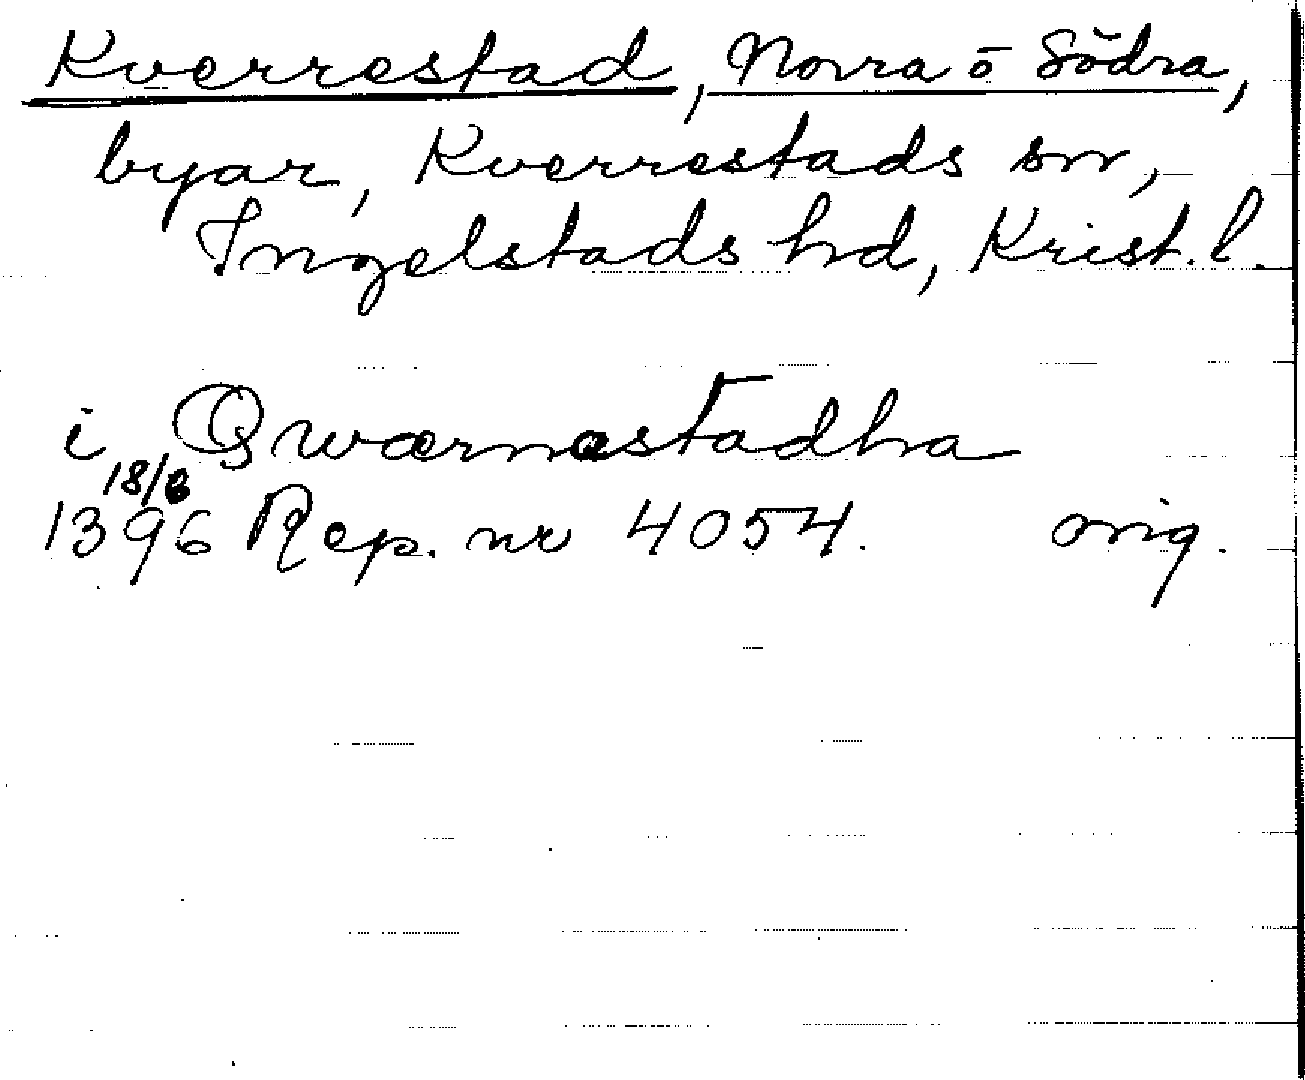 Kverrestad, Norra o Södra,
byar, Kverrestads sn,
Ingelstads hd, Krist. l.
i Qwærnastadha
18/8
1396 Rep. nr 4054. orig.